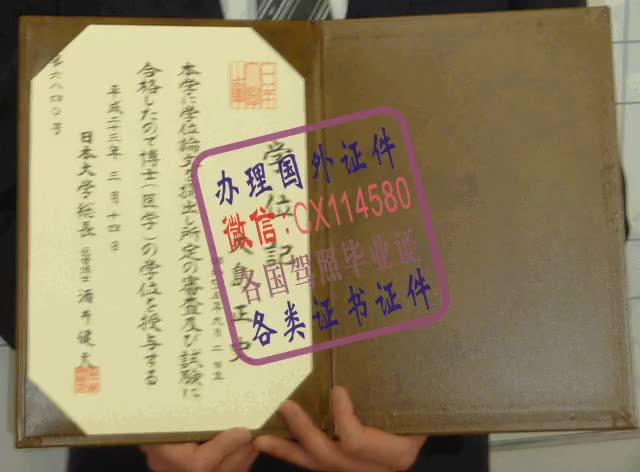 学位記
島 正史
五年九月二日生
本学に学位論文を提出し所定の審査及び試験に
合格したので博士(医学)の学位を授与する
平成二十三年 三月十四日
日本大学総長 酒井健夫
第六八四〇号
办理国外证件
微信:CX114580
各国驾照毕业证
各类证书证件